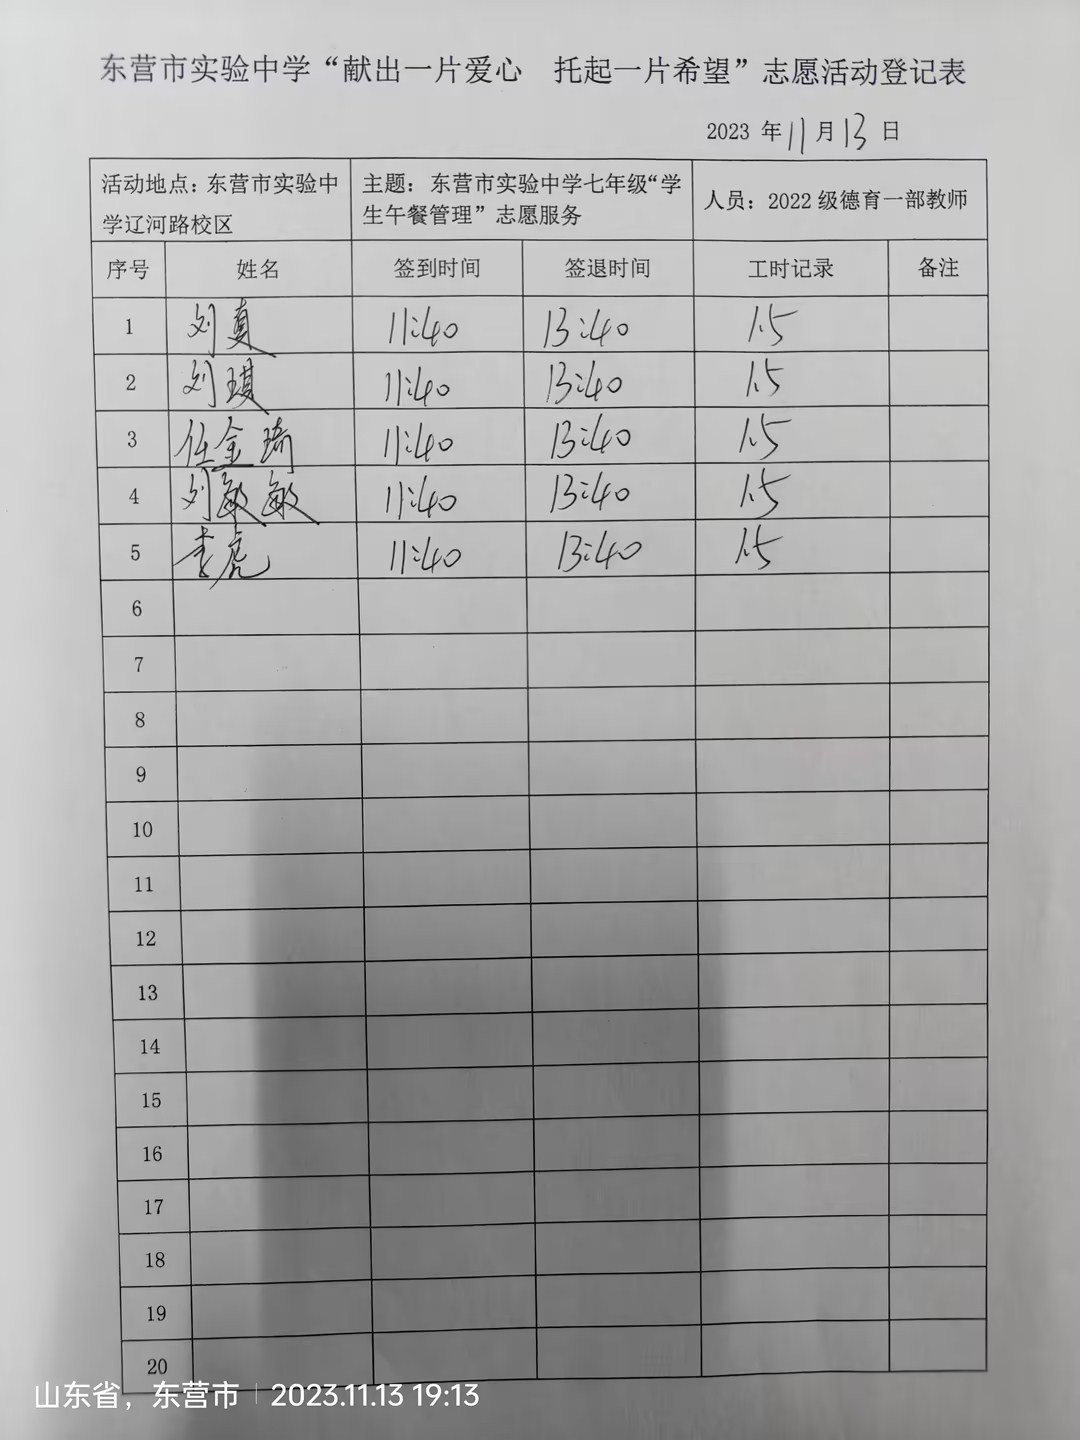 东营市实验中学“献出一片爱心　托起一片希望”志愿活动登记表
2023 年 11 月 13 日
活动地点：东营市实验中学辽河路校区 主题：东营市实验中学七年级“学生午餐管理”志愿服务 人员：2022 级德育一部教师
序号 姓名 签到时间 签退时间 工时记录 备注
1 刘真 11:40 13:40 1.5
2 刘琪 11:40 13:40 1.5
3 任金琦 11:40 13:40 1.5
4 刘敏敏 11:40 13:40 1.5
5 李虎 11:40 13:40 1.5
6
7
8
9
10
11
12
13
14
15
16
17
18
19
20
山东省，东营市 | 2023.11.13 19:13